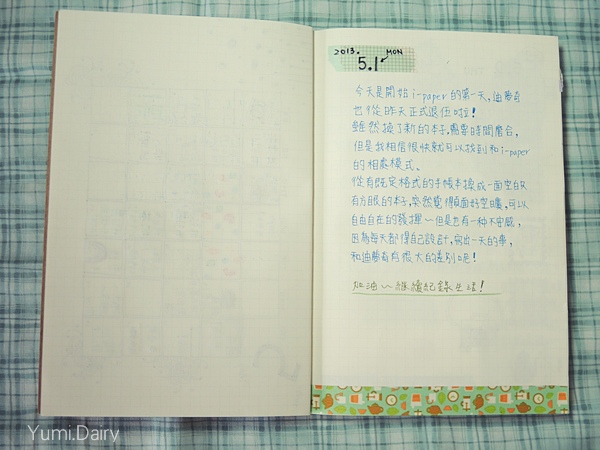 2013.
5.1 MON
今天是開始i-paper的第一天,迪夢奇
也從昨天正式退伍啦!
雖然換了新的本子,需要時間磨合,
但是我相信很快就可以找到和i-paper
的相處模式。
從有既定格式的手帳本換成一面空白只
有方眼的本子,突然覺得頁面好空曠,可以
自由自在的發揮~但是也有一种不安感,
因為每天都得自己設計,寫出一天的事,
和迪夢奇有很大的差別吧!
加油~繼續記錄生活!
Yumi.Dairy